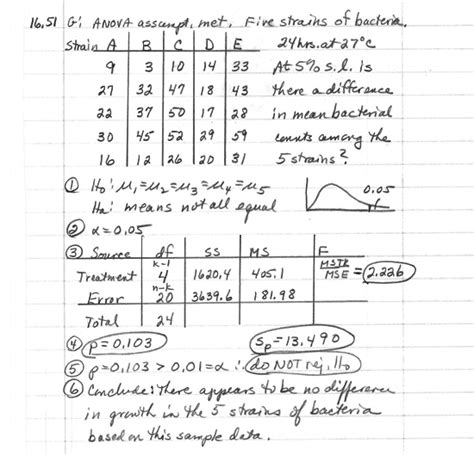 16.51 G: ANOVA assumpt. met. Five strains of bacteria.
Strain A B C D E 24 hrs. at 27°C
9 3 10 14 33 At 5% s.l. is
27 32 47 18 43 there a difference
22 37 50 17 28 in mean bacterial
30 45 52 29 59 counts among the
16 12 26 20 31 5 strains?
① H₀: μ₁=μ₂=μ₃=μ₄=μ₅ 0.05
Ha: means not all equal
② α=0.05
③ Source df SS MS F
Treatment k-1 4 1620.4 405.1 MSTR/MSE = 2.226
Error n-k 20 3639.6 181.98
Total 24
④ p=0.103 Sp=13.490
⑤ p=0.103 > 0.01=α ∴ do NOT rej. H₀
⑥ Conclude: There appears to be no difference
in growth in the 5 strains of bacteria
based on this sample data.